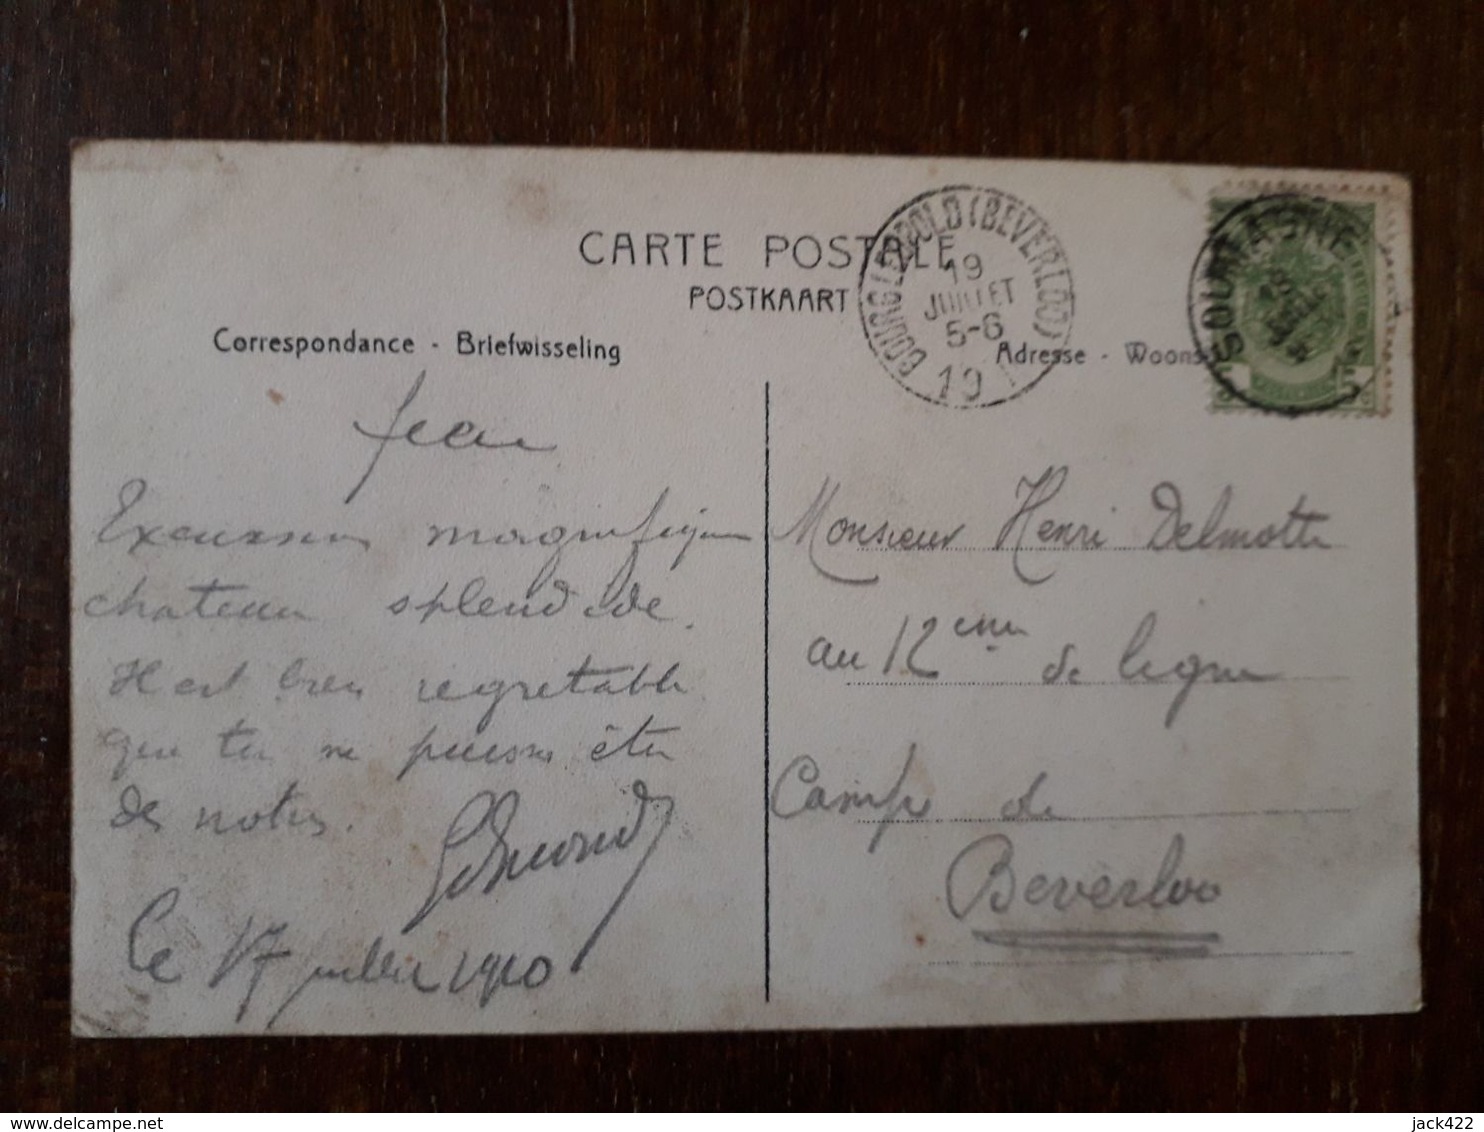 CARTE POSTALE
POSTKAART
Correspondance - Briefwisseling
Adresse - Woons
BOURG LÉOPOLD (BEVERLOO)
19
JUILLET
5-6
10
SOUMAGNE
5
Jean
Excursion magnifique
chateau splendide.
Il est bien regretable
que tu ne puisses être
des notres.
Edmond
Le 17 juillet 1910
Monsieur Henri Delmotte
au 12eme de ligne
Camp de
Beverloo
delcampe.net
jack422